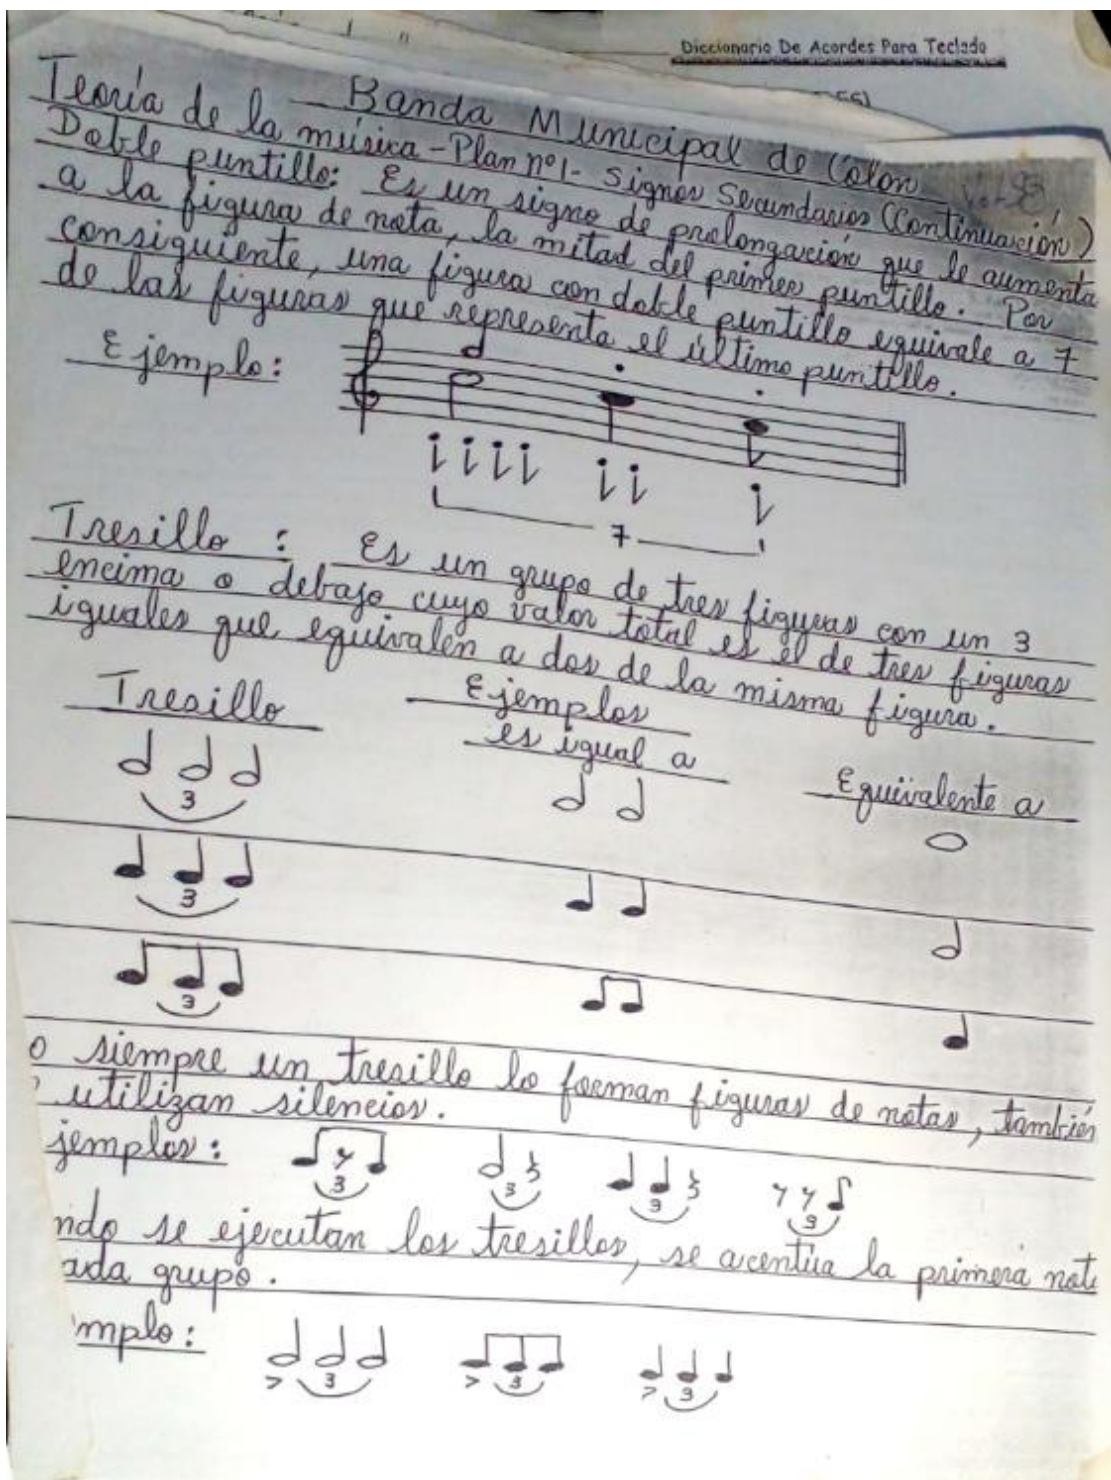 Diccionario De Acordes Para Teclado
Banda Municipal de Colón
Teoría de la música - Plan nº1 - Signos Secundarios (Continuación)
Doble puntillo: Es un signo de prolongación que le aumenta
a la figura de nota, la mitad del primer puntillo. Por
consiguiente, una figura con doble puntillo equivale a 7
de las figuras que representa el último puntillo.
Ejemplo:
7
Tresillo : Es un grupo de tres figuras con un 3
encima o debajo cuyo valor total es el de tres figuras
iguales que equivalen a dos de la misma figura.
Tresillo Ejemplos
es igual a Equivalente a
3
3
3
o siempre un tresillo lo forman figuras de notas, también
utilizan silencios.
jemplos: 3 3 3 3
ndo se ejecutan los tresillos, se acentúa la primera not
ada grupo.
mplo: > 3 > 3 > 3